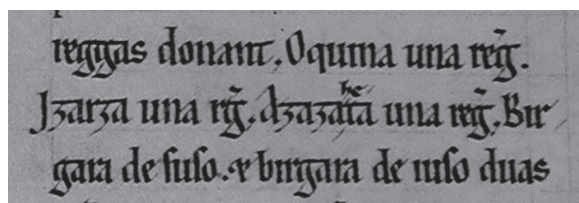 reggas donant, Oquina una reg̃.
Jzarza una rg̃, Azazaheta una reg̃, Bir
gara de ſuſo. & birgara de iuſo duas